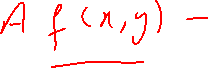 A f(x,y) -